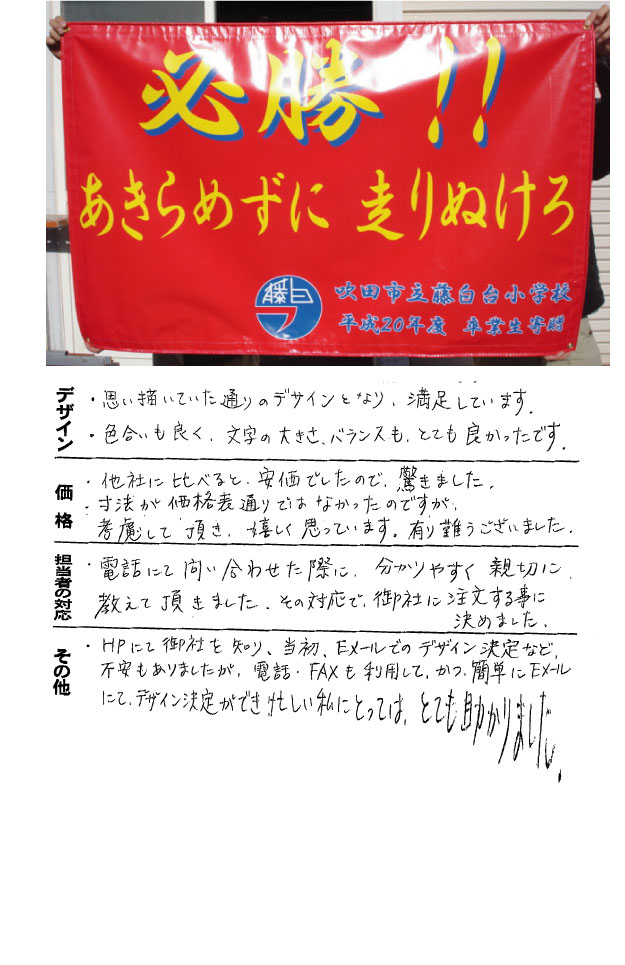 必勝!!
あきらめずに 走りぬけろ
藤白
吹田市立藤白台小学校
平成20年度 卒業生寄贈
デザイン
・思い描いていた通りのデザインとなり、満足しています。
・色合いも良く、文字の大きさ、バランスも、とても良かったです。
価格
・他社に比べると、安価でしたので、驚きました。
・寸法が価格表通りではなかったのですが、
考慮して頂き、嬉しく思っています。有り難うございました。
担当者の対応
・電話にて問い合わせた際に、分かりやすく親切に
教えて頂きました。その対応で、御社に注文する事に
決めました。
その他
・HPにて御社を知り、当初、EメールでのデザインBold決定など、
不安もありましたが、電話・FAXも利用して、かつ、簡単にEメール
にて、デザイン決定ができ忙しい私にとっては、とても助かりました。